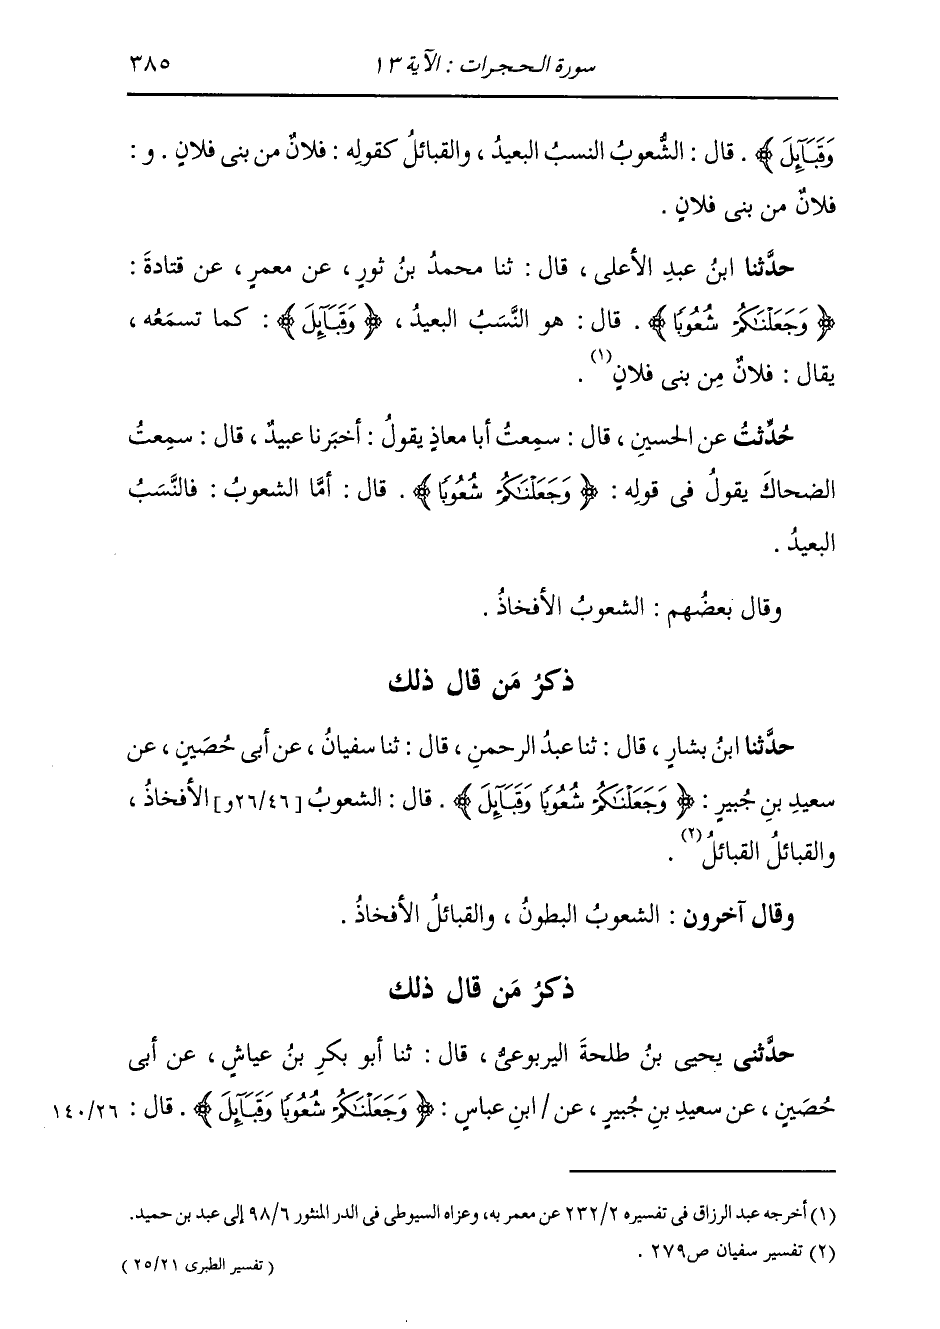 سورة الحجرات : الآية ١٣
٣٨٥
وَقَبَآئِلَ ﴾ . قال : الشُّعوبُ النسبُ البعيدُ ، والقبائلُ كقولِه : فلانٌ من بنى فلانٍ . و :
فلانٌ من بنى فلانٍ .
حدَّثنا ابنُ عبدِ الأعلى ، قال : ثنا محمدُ بنُ ثورٍ ، عن معمرٍ ، عن قتادةَ :
﴿ وَجَعَلْنَٰكُمْ شُعُوبًا ﴾ . قال : هو النَّسَبُ البعيدُ ، ﴿ وَقَبَآئِلَ ﴾ : كما تسمَعُه ،
يقال : فلانٌ مِن بنى فلانٍ(١) .
حُدِّثتُ عن الحسينِ ، قال : سمِعتُ أبا معاذٍ يقولُ : أخبَرنا عبيدٌ ، قال : سمِعتُ
الضحاكَ يقولُ فى قولِه : ﴿ وَجَعَلْنَٰكُمْ شُعُوبًا ﴾ . قال : أمَّا الشعوبُ : فالنَّسَبُ
البعيدُ .
وقال بعضُهم : الشعوبُ الأفخاذُ .
ذكرُ مَن قال ذلك
حدَّثنا ابنُ بشارٍ ، قال : ثنا عبدُ الرحمنِ ، قال : ثنا سفيانُ ، عن أبى حُصَينٍ ، عن
سعيدِ بنِ جُبيرٍ : ﴿ وَجَعَلْنَٰكُمْ شُعُوبًا وَقَبَآئِلَ ﴾ . قال : الشعوبُ [٢٦/٤٦و] الأفخاذُ ،
والقبائلُ القبائلُ(٢) .
وقال آخرون : الشعوبُ البطونُ ، والقبائلُ الأفخاذُ .
ذكرُ مَن قال ذلك
حدَّثنى يحيى بنُ طلحةَ اليربوعىُّ ، قال : ثنا أبو بكرِ بنُ عياشٍ ، عن أبى
حُصَينٍ ، عن سعيدِ بنِ جُبيرٍ ، عن / ابنِ عباسٍ : ﴿ وَجَعَلْنَٰكُمْ شُعُوبًا وَقَبَآئِلَ ﴾ . قال : ١٤٠/٢٦
(١) أخرجه عبد الرزاق فى تفسيره ٢٣٢/٢ عن معمر به، وعزاه السيوطى فى الدر المنثور ٩٨/٦ إلى عبد بن حميد.
(٢) تفسير سفيان ص٢٧٩ .
( تفسير الطبرى ٢٥/٢١ )